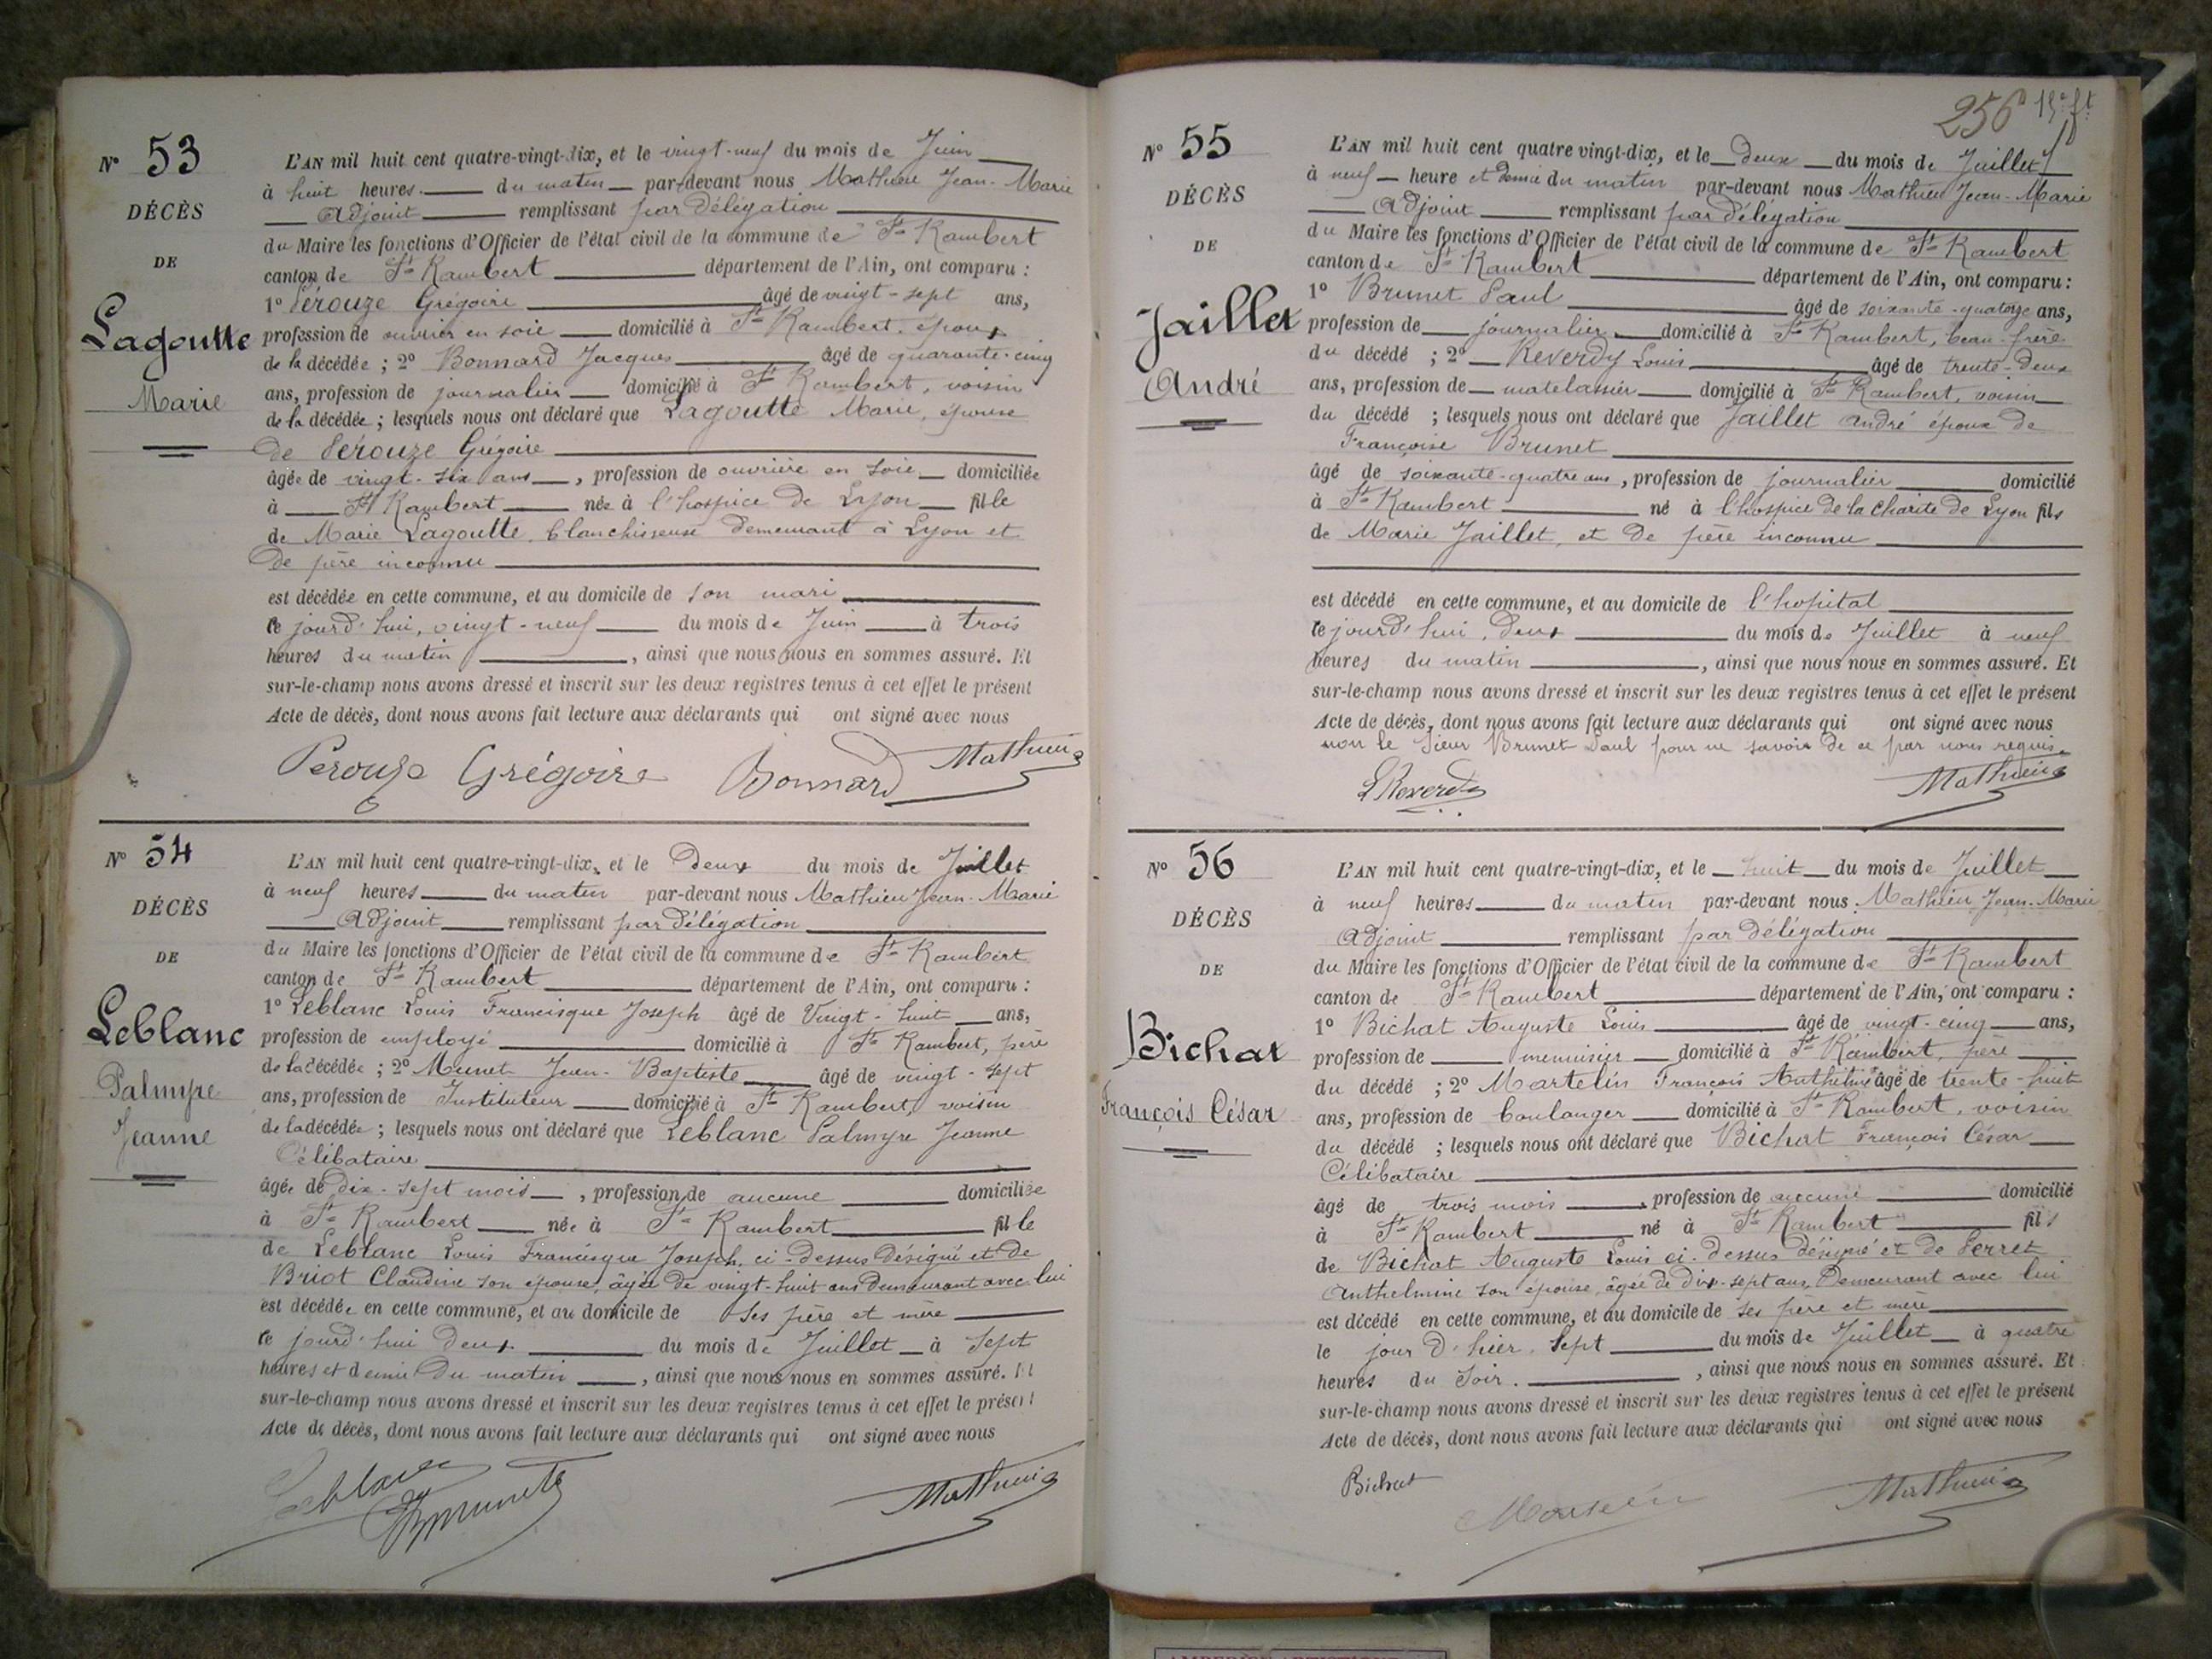 Nº 53
DÉCÈS
DE
Lagoutte
Marie
L'AN mil huit cent quatre-vingt-dix, et le vingt-neuf du mois de Juin
à huit heures du matin par-devant nous Mathieu Jean-Marie
Adjoint remplissant par Délégation
du Maire les fonctions d'Officier de l'état civil de la commune de St Rambert
canton de St Rambert département de l'Ain, ont comparu :
1º Pérouze Grégoire âgé de vingt-sept ans,
profession de ouvrier en soie domicilié à St Rambert, époux
de la décédée ; 2º Bonnard Jacques âgé de quarante-cinq
ans, profession de journalier domicilié à St Rambert, voisin
de la décédée ; lesquels nous ont déclaré que Lagoutte Marie, épouse
de Pérouze Grégoire
âgée de vingt-six ans, profession de ouvrière en soie domiciliée
à St Rambert née à l'hospice de Lyon fille
de Marie Lagoutte, blanchisseuse demeurant à Lyon et
de père inconnu
est décédée en cette commune, et au domicile de son mari
le jourd'hui, vingt-neuf du mois de Juin à trois
heures du matin, ainsi que nous nous en sommes assuré. Et
sur-le-champ nous avons dressé et inscrit sur les deux registres tenus à cet effet le présent
Acte de décès, dont nous avons fait lecture aux déclarants qui ont signé avec nous
Perouze Grégoire Bonnard Mathieu
Nº 54
DÉCÈS
DE
Leblanc
Palmyre
Jeanne
L'AN mil huit cent quatre-vingt-dix, et le Deux du mois de Juillet
à neuf heures du matin par-devant nous Mathieu Jean-Marie
Adjoint remplissant par Délégation
du Maire les fonctions d'Officier de l'état civil de la commune de St Rambert
canton de St Rambert département de l'Ain, ont comparu :
1º Leblanc Louis Francisque Joseph âgé de Vingt-huit ans,
profession de employé domicilié à St Rambert, père
de la décédée ; 2º Munet Jean-Baptiste âgé de vingt-sept
ans, profession de Instituteur domicilié à St Rambert, voisin
de la décédée ; lesquels nous ont déclaré que Leblanc Palmyre Jeanne
Célibataire
âgée de dix-sept mois, profession de aucune domiciliée
à St Rambert née à St Rambert fille
de Leblanc Louis Francisque Joseph, ci-dessus désigné et de
Briot Claudine son épouse, âgée de vingt-huit ans demeurant avec lui
est décédée en cette commune, et au domicile de ses père et mère
le jourd'hui deux du mois de Juillet à sept
heures et demie du matin, ainsi que nous nous en sommes assuré. Et
sur-le-champ nous avons dressé et inscrit sur les deux registres tenus à cet effet le présent
Acte de décès, dont nous avons fait lecture aux déclarants qui ont signé avec nous
Leblanc Mathieu
256
Nº 55
DÉCÈS
DE
Jaillet
André
L'AN mil huit cent quatre vingt-dix, et le Deux du mois de Juillet
à neuf heure et demie du matin par-devant nous Mathieu Jean-Marie
Adjoint remplissant par délégation
du Maire les fonctions d'Officier de l'état civil de la commune de St Rambert
canton de St Rambert département de l'Ain, ont comparu :
1º Brunet Paul âgé de soixante-quatorze ans,
profession de journalier domicilié à St Rambert, beau-frère
du décédé ; 2º Reverdy Louis âgé de trente-deux
ans, profession de matelassier domicilié à St Rambert, voisin
du décédé ; lesquels nous ont déclaré que Jaillet André époux de
Françoise Brunet
âgé de soixante-quatre ans, profession de journalier domicilié
à St Rambert né à l'hospice de la Charité de Lyon fils
de Marie Jaillet, et de père inconnu
est décédé en cette commune, et au domicile de l'hopital
le jourd'hui, deux du mois de Juillet à neuf
heures du matin, ainsi que nous nous en sommes assuré. Et
sur-le-champ nous avons dressé et inscrit sur les deux registres tenus à cet effet le présent
Acte de décès, dont nous avons fait lecture aux déclarants qui ont signé avec nous
non le sieur Brunet Paul pour ne savoir de ce par nous requis.
L Reverdy Mathieu
Nº 56
DÉCÈS
DE
Bichat
François César
L'AN mil huit cent quatre-vingt-dix, et le huit du mois de Juillet
à neuf heures du matin par-devant nous Mathieu Jean-Marie
Adjoint remplissant par Délégation
du Maire les fonctions d'Officier de l'état civil de la commune de St Rambert
canton de St Rambert département de l'Ain, ont comparu :
1º Bichat Auguste Louis âgé de vingt-cinq ans,
profession de menuisier domicilié à St Rambert, père
du décédé ; 2º Martelin François Anthelme âgé de trente-huit
ans, profession de boulanger domicilié à St Rambert, voisin
du décédé ; lesquels nous ont déclaré que Bichat François César
Célibataire
âgé de trois mois, profession de aucune domicilié
à St Rambert né à St Rambert fils
de Bichat Auguste Louis ci-dessus désigné et de Perret
Anthelmine son épouse, âgée de dix-sept ans, Demeurant avec lui
est décédé en cette commune, et au domicile de ses père et mère
le jour d'hier, sept du mois de Juillet à quatre
heures du soir, ainsi que nous nous en sommes assuré. Et
sur-le-champ nous avons dressé et inscrit sur les deux registres tenus à cet effet le présent
Acte de décès, dont nous avons fait lecture aux déclarants qui ont signé avec nous
Bichat Mathieu